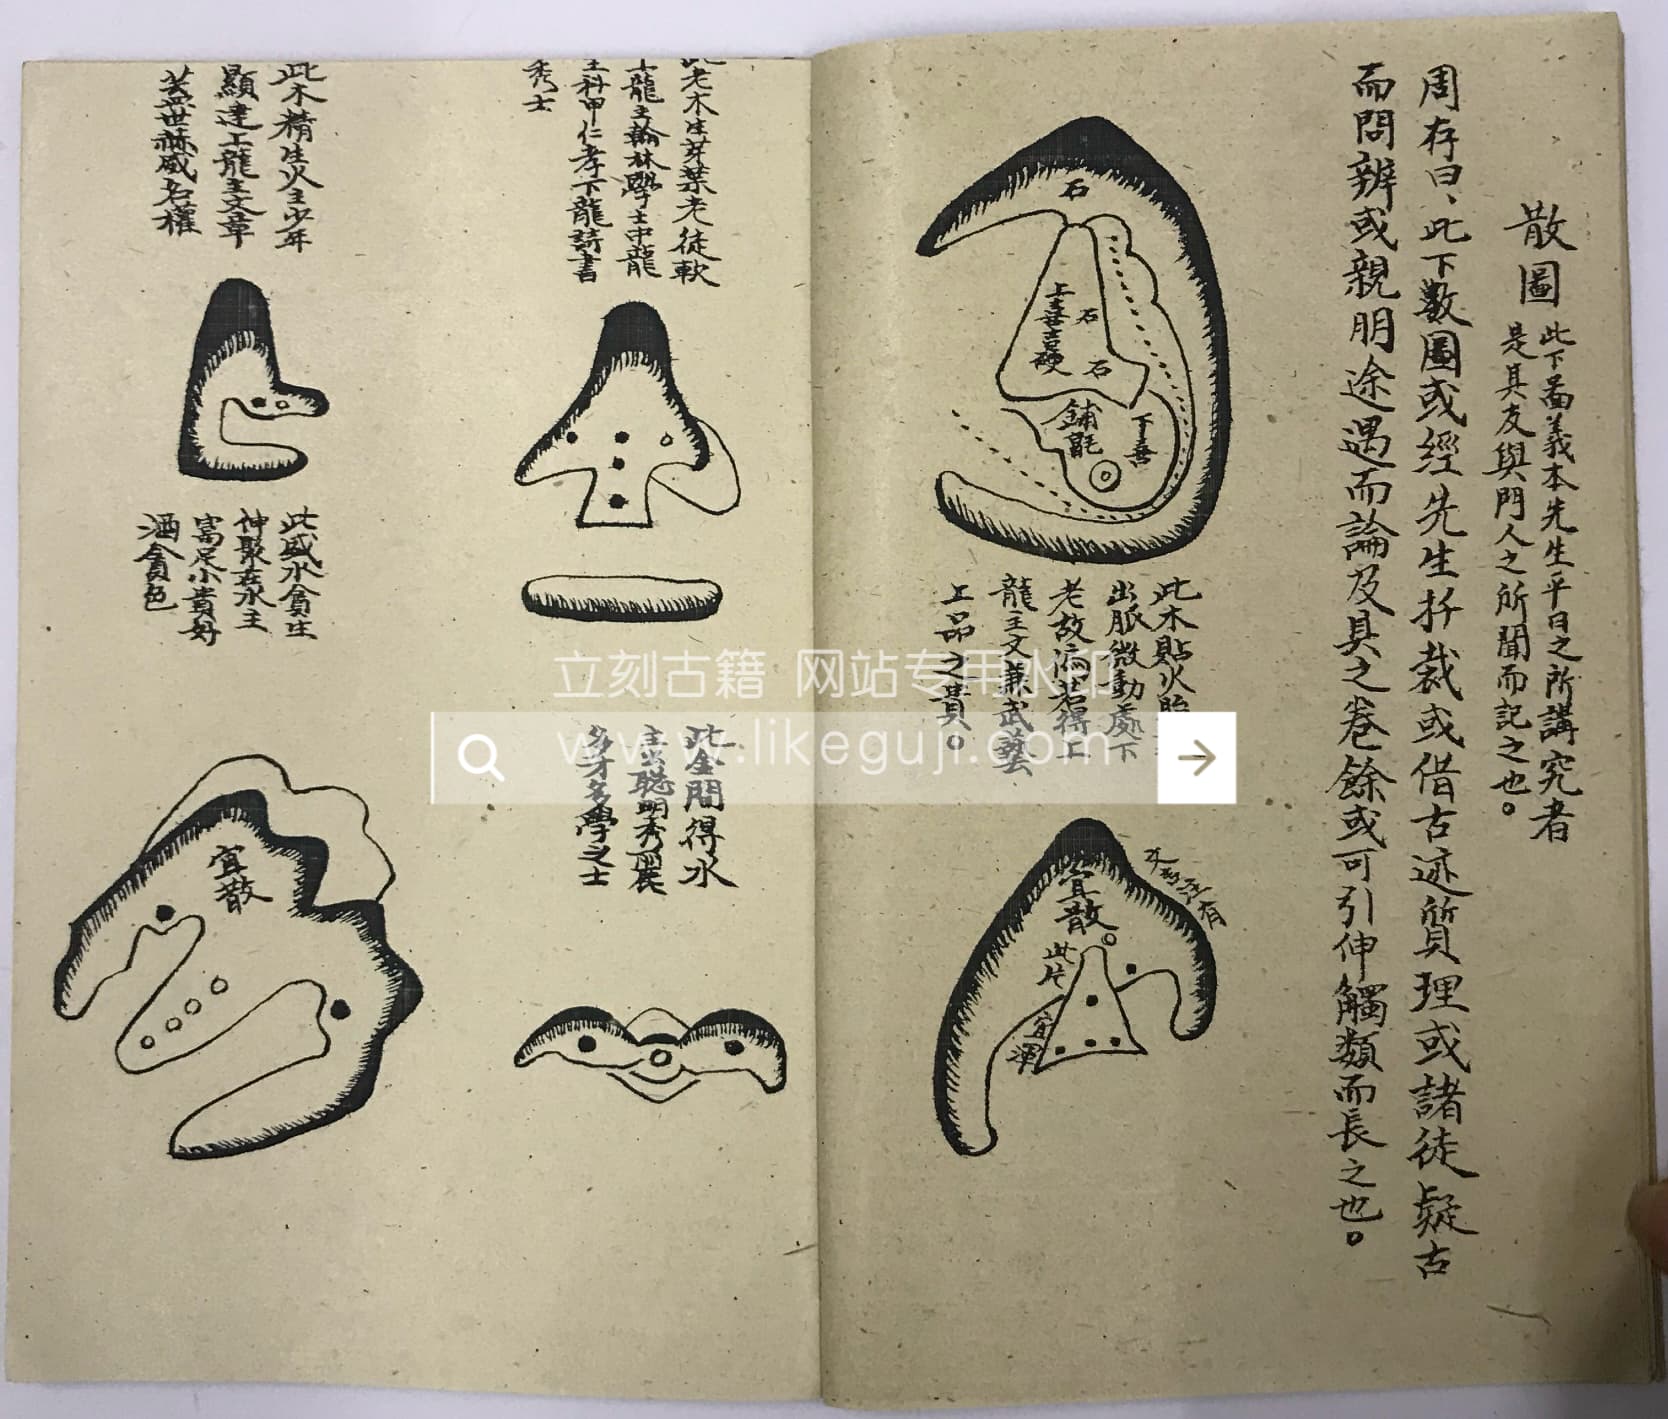 散圖
此下畨義本先生平日之所講究者
是其友與門人之所聞而記之也。
周存曰、此下數圖或經先生扦裁或借古述質理或諸徒疑古
而問辨或親朋途遇而論及具之卷餘或可引伸觸類而長之也。
石
石
上善吉硬
石
鋪氈
下善
此木貼火
出脈微動處下
老故偏若得上
龍主文兼武藝
上品之貴。
宜散。
此片
有
老木生芽葉老徒軟
龍主翰林學士中龍
科甲仁孝下龍詩書
秀士
此金間得水
主聰明秀麗
多才多學之士
此木精生火主少年
顯達上龍主文章
蓋世赫威名權
此盛水貪生
伸聚在水主
富足小貴好
酒貪色
宜散
立刻古籍 网站专用水印
www.likeguji.com